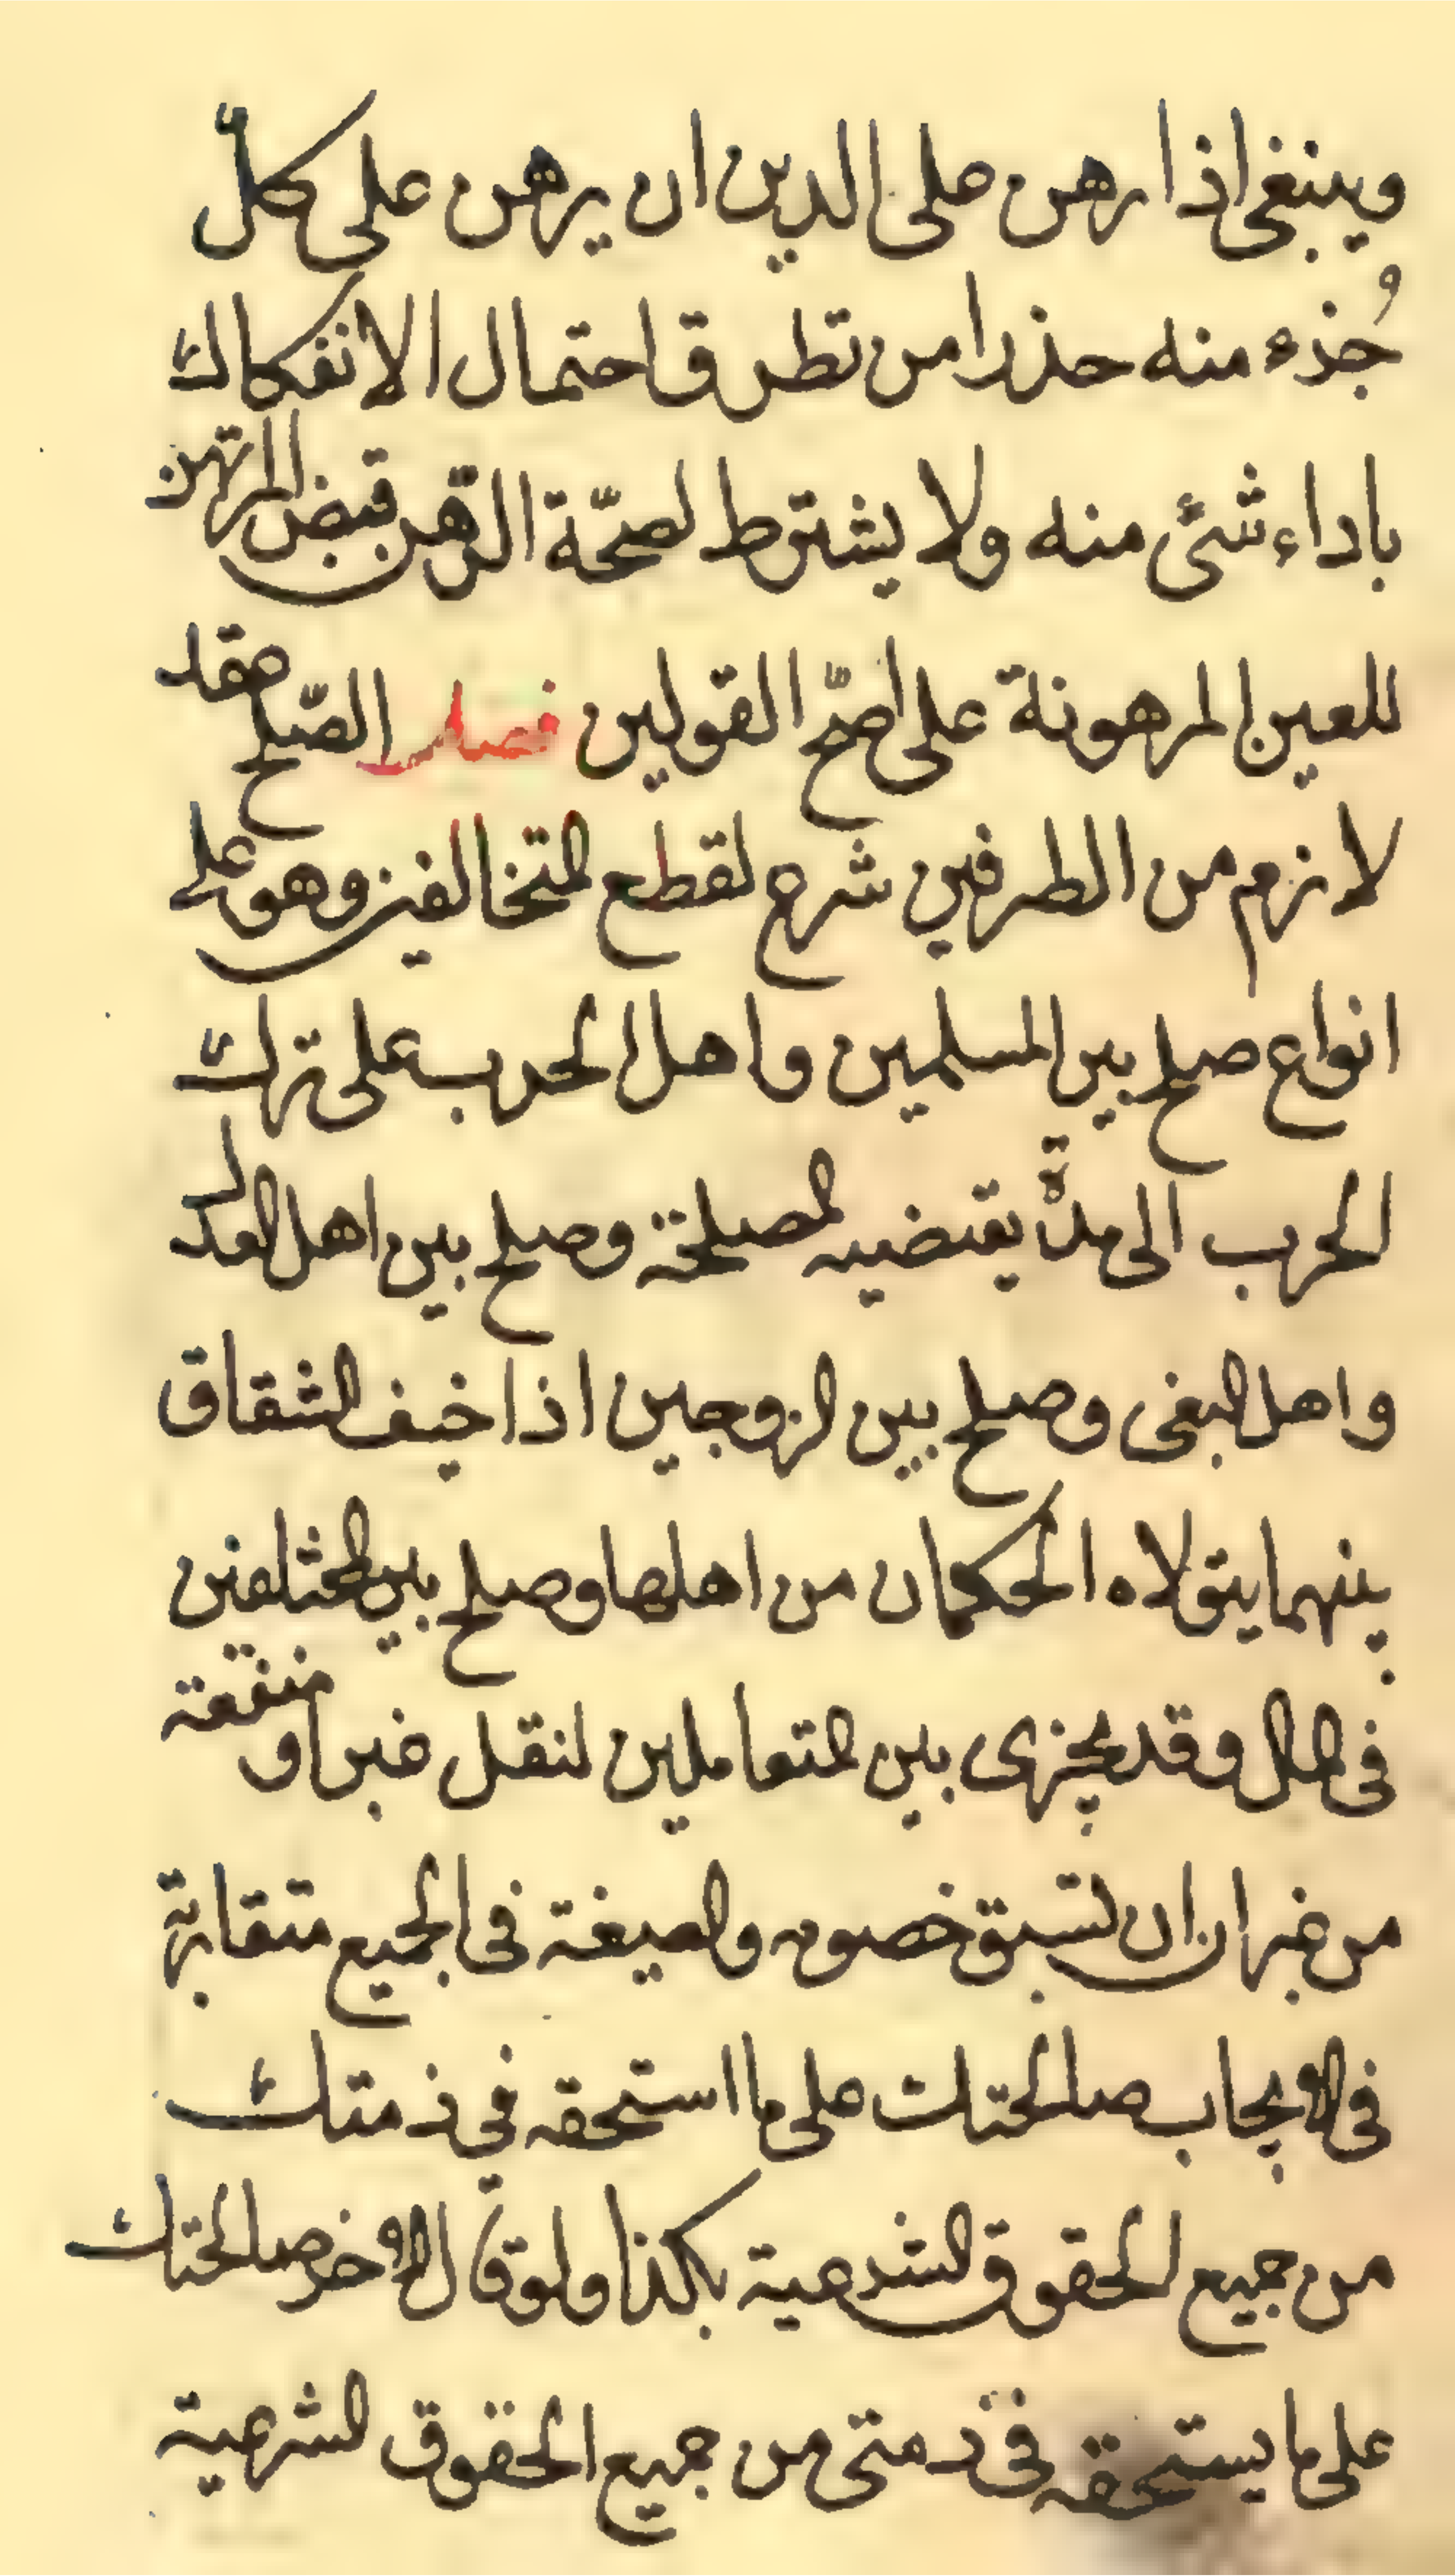 وينبغى اذا رهن على الدين ان يرهن على كلّ
جُذء منه حذرا من تطرق احتمال الانفكاك
باداء شئ منه ولا يشترط لصحّة الرّهن قبض المرتهن
للعين المرهونة على اصحّ القولين فصل الصّلح عقد
لازم من الطرفين شرع لقطع المتخالفين وهو على
انواع صلح بين المسلمين واهل الحرب على ترك
الحرب الى مدّة يقتضيه المصلحة وصلح بين اهل العدل
واهل البغى وصلح بين الزوجين اذا خيف الشقاق
بينهما يتولاه الحكمان من اهلها وصلح بين المختلفين
فى المال وقد يجزى بين المتعاملين لنقل غير او منفعة
من غير ان ان تسبق خصومه والصيغة فى الجميع متقاربة
فى الايجاب صالحتك على ما استحقه في ذمتك
من جميع الحقوق الشرعية بكذا ولو قال الاخر صالحتك
على ما يستحقه فى ذمتى من جميع الحقوق الشرعية